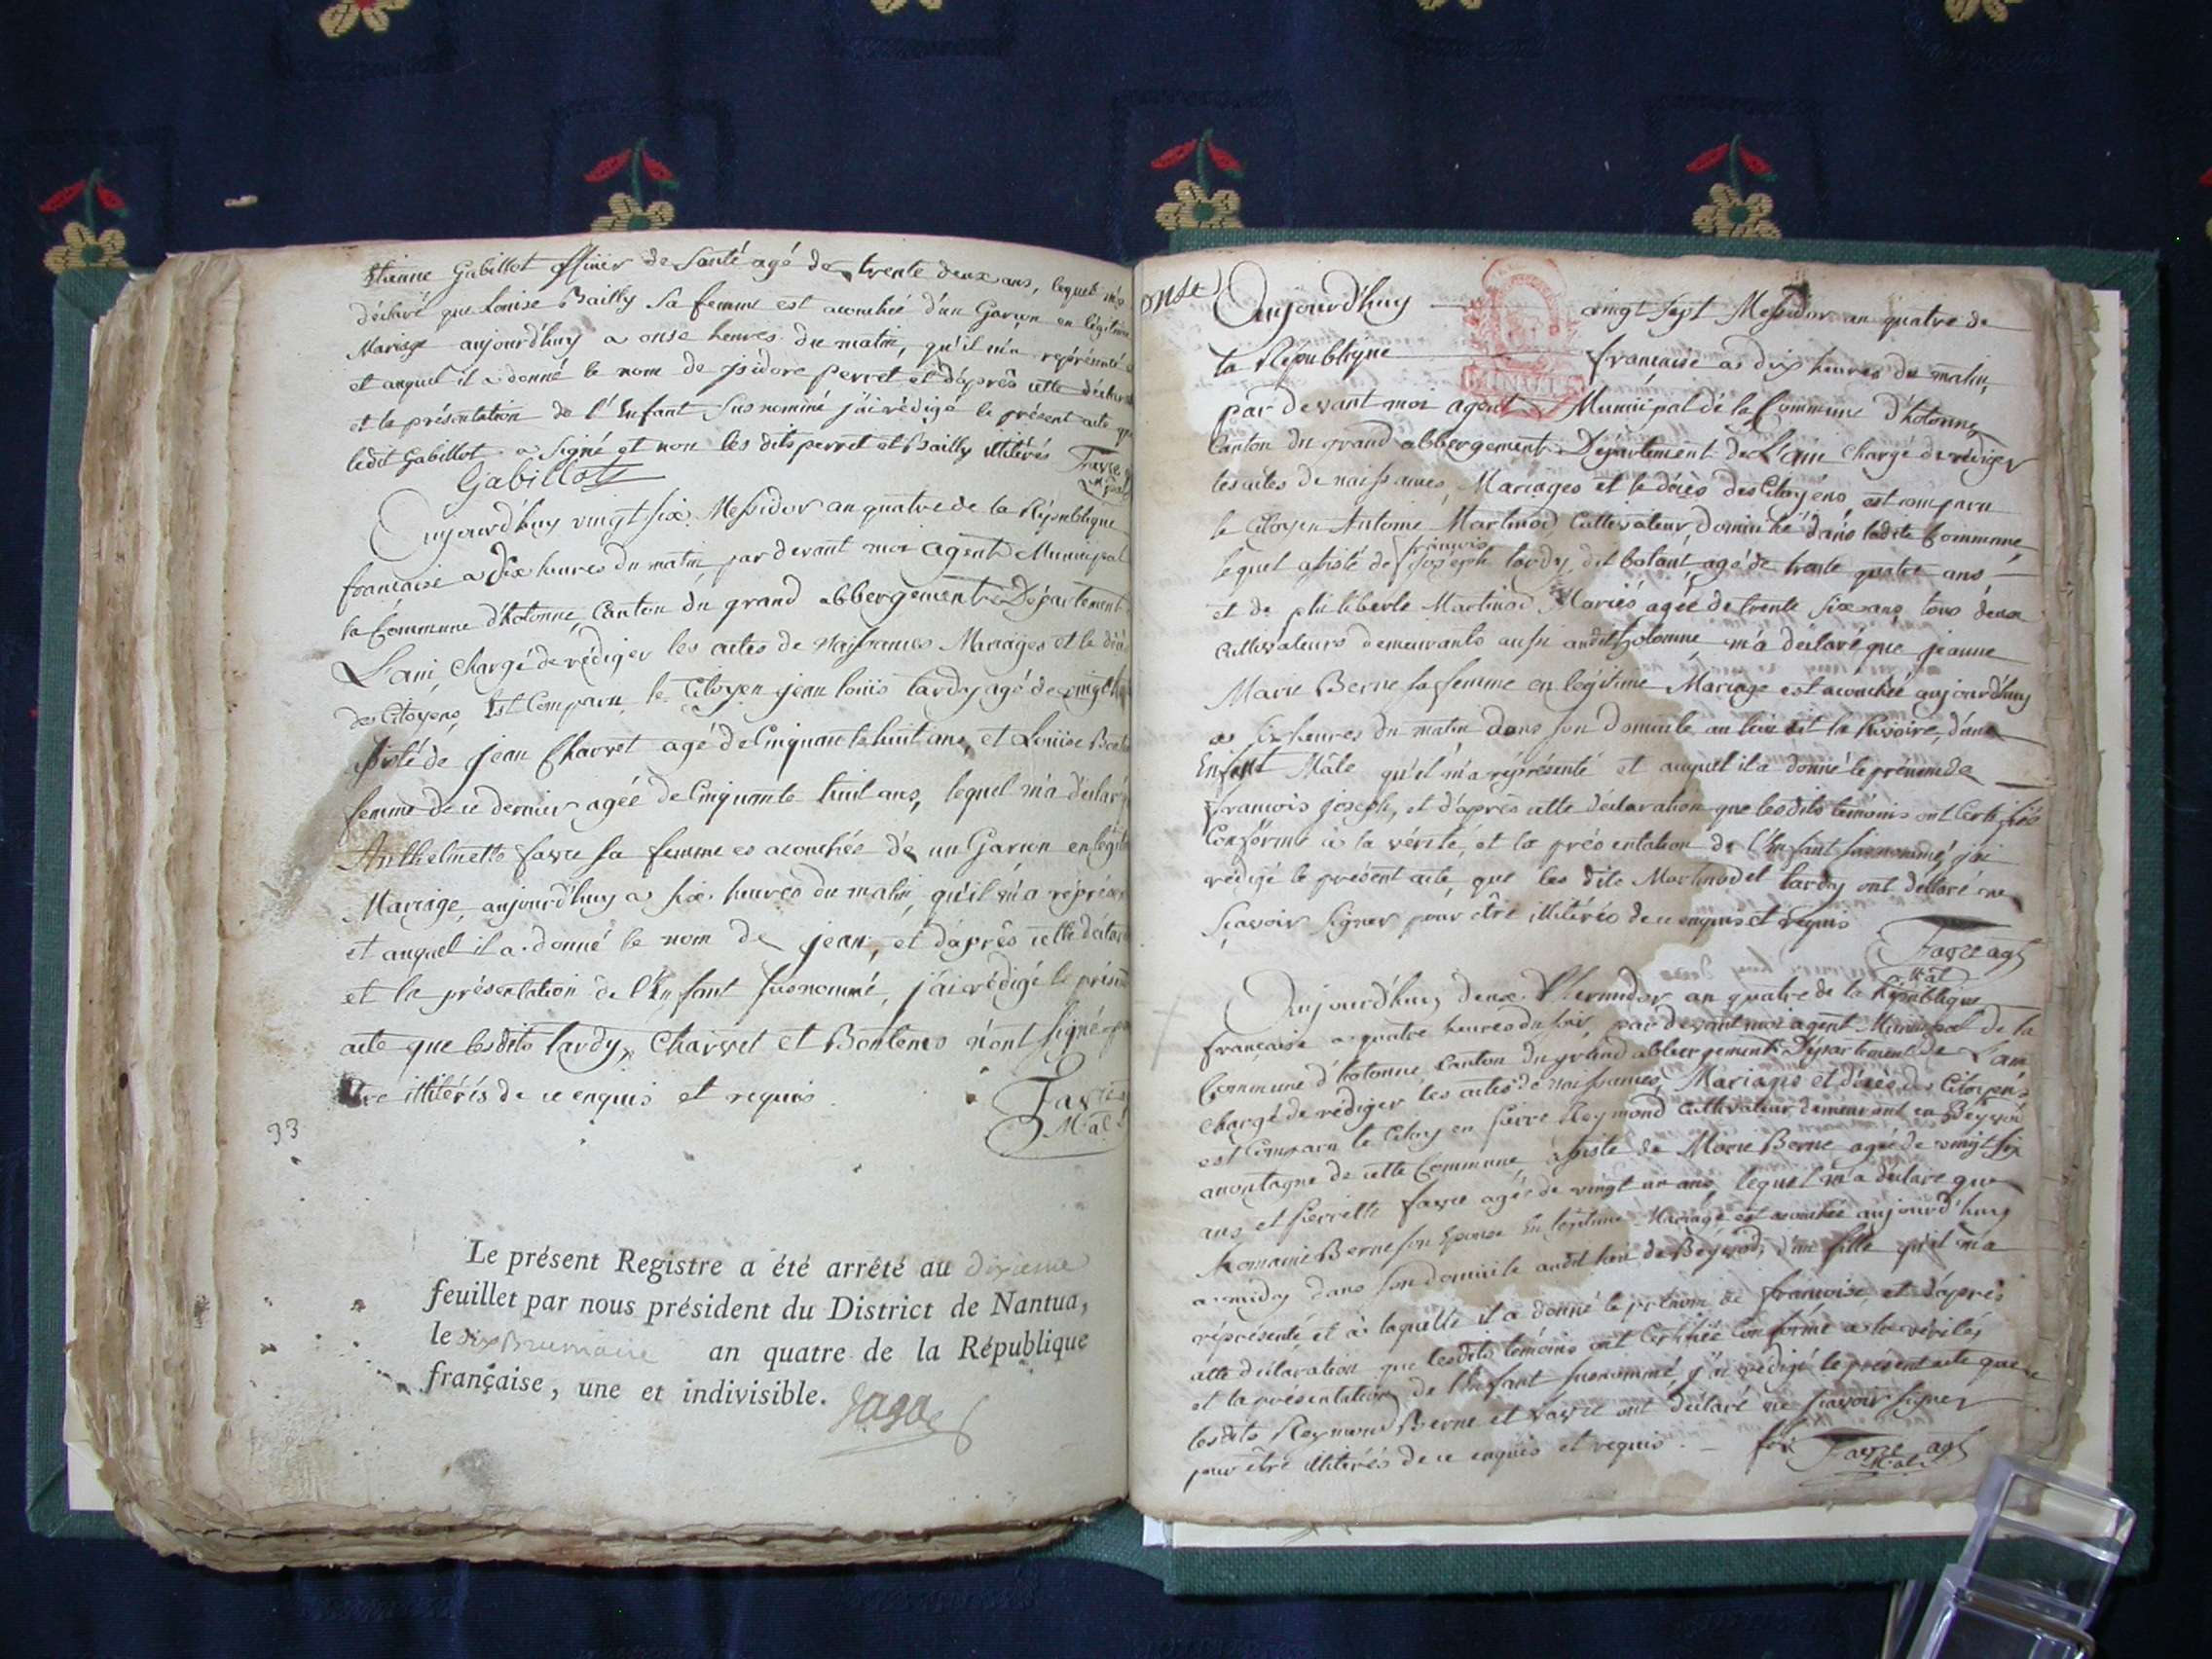 Etienne Gabillot officier de Santé agé de trente deux ans, lequel m'a
déclaré que Louise Bailly sa femme est acouchée d'un Garçon en légitime
Mariage aujourd'huy a onse heures du matin, qu'il m'a représenté
et auquel il a donné le nom de isidore perret et d'après cette déclarat
et la présentation de l'Enfant susnommé j'ai rédigé le présent acte que
ledit Gabillot a signé et non les dits perret et Bailly illitérés Favre
Gabillot
Aujourd'huy vingt six Messidor an quatre de la République
française a dix heures du matin, par devant moi agent Municipal
la Commune d'hotonne, Canton du grand abbergement Département
L'ain, chargé de rédiger les actes de Naissances Mariages et le décè
des Citoyens, Est Comparu le Citoyen jean louis tardy agé de vingt
assisté de jean Charvet agé de Cinquante huit ans, et Louise
femme de ce dernier agée de Cinquante huit ans, lequel m'a déclaré
Anthelmette favre sa femme es acouchée de un Garçon en légit
Mariage, aujourd'huy a six heures du matin, qu'il m'a représen
et auquel il a donné le nom de jean, et d'après cette déclar
et la présentation de l'Enfant susnommé, j'ai rédigé le présent
acte que lesdits tardy, Charvet et Bontems n'ont signé p
être illitérés de ce enquis et requis
Favre
M.al
33
Le présent Registre a été arrêté au dixieme
feuillet par nous président du District de Nantua,
le six Brumaire an quatre de la République
française, une et indivisible.
onse
Aujourd'huy vingt sept Messidor an quatre de
la République française a dix heures du matin,
MINUTE
par devant moi agent Municipal de la Commune d'hotonne
Canton du grand abbergement Département de L'ain chargé de rédiger
les actes de naissances, Mariages et le décès des Citoyens, est comparu
le Citoyen Antoine Martinod Cultivateur, domicilié dans ladite Commune,
françois
lequel assisté de joseph tardy, dit bolant, agé de trente quatre ans,
et de philiberte Martinod Mariés agée de trente six ans, tous deux
Cultivateurs demeurants aussi audit hotonne, m'a déclaré que jeanne
Marie Berne sa femme en légitime Mariage est acouchée aujourd'huy
a six heures du matin dans son domicile au lieu dit la Rivoire, d'un
Enfant Mâle qu'il m'a représenté et auquel il a donné le prénom de
francois joseph, et d'après cette déclaration que lesdits temoins ont Certifiée
Conforme à la vérité, et la présentation de l'Enfant susnommé, j'ai
rédigé le présent acte, que les dits Martinod et tardy ont déclaré ne
sçavoir signer pour être illitérés de ce enquis et requis
Favre agt
M.al
Aujourd'huy deux thermidor an quatre de la République
française a quatre heures du soir, par devant moi agent Municipal de la
Commune d'hotonne, Canton du grand abbergement Département de L'ain
chargé de rédiger les actes de naissances, Mariages et décès des Citoyens
est Comparu le Citoyen pierre Reymond Cultivateur, demeurant en
amontagne de cette Commune, assisté de Marie Berne agée de vingt six
ans et pierrette favre agée de vingt un ans, lequel m'a déclaré que
Romaine Berne son Epouse En légitime Mariage est acouchée aujourd'huy
a midy dans son domicile audit lieu de d'un fille qu'il m'a
représenté, et à laquelle il a donné le prénom de françoise, et d'après
cette déclaration que lesdits témoins ont Certifiée Conforme a la vérité,
et la présentation de l'Enfant susnommé, j'ai rédigé le présent acte que
lesdits Reymond Berne et favre ont déclaré ne sçavoir signer
pour être illitérés de ce enquis et requis. Favre agt
M.al